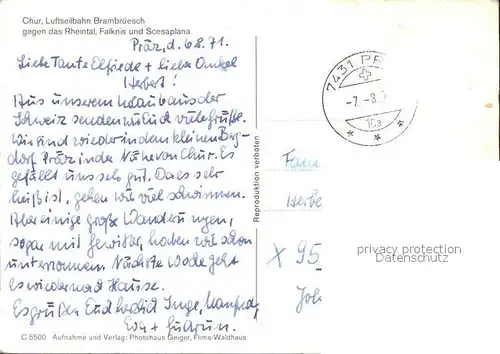 Chur, Luftseilbahn Brambrüesch
gegen das Rheintal, Falknis und Scesaplana
Präz, d. 6.8.71.
Liebe Tante Elfriede + lieber Onkel
Herbert!
Aus unserem Urlaub aus der
Schweiz senden wir Euch viele Grüße.
Wir sind wieder in dem kleinen Berg-
dorf Präz in der Nähe von Chur. Es
gefällt uns sehr gut. Da es sehr
heiß ist, gehen wir viel schwimmen.
Aber einige große Wanderungen,
sogar mit Gewitter, haben wir schon
unternommen. Nächste Woche geht
es wieder nach Hause.
Es grüßen Euch herzlich Inge, Manfred,
Eva + Gudrun.
C 5500 Aufnahme und Verlag: Photohaus Geiger, Flims-Waldhaus
Reproduktion verboten
7431 PR
-7.-8.
Fam
Herbe
X 95
Joh
privacy protection
Datenschutz